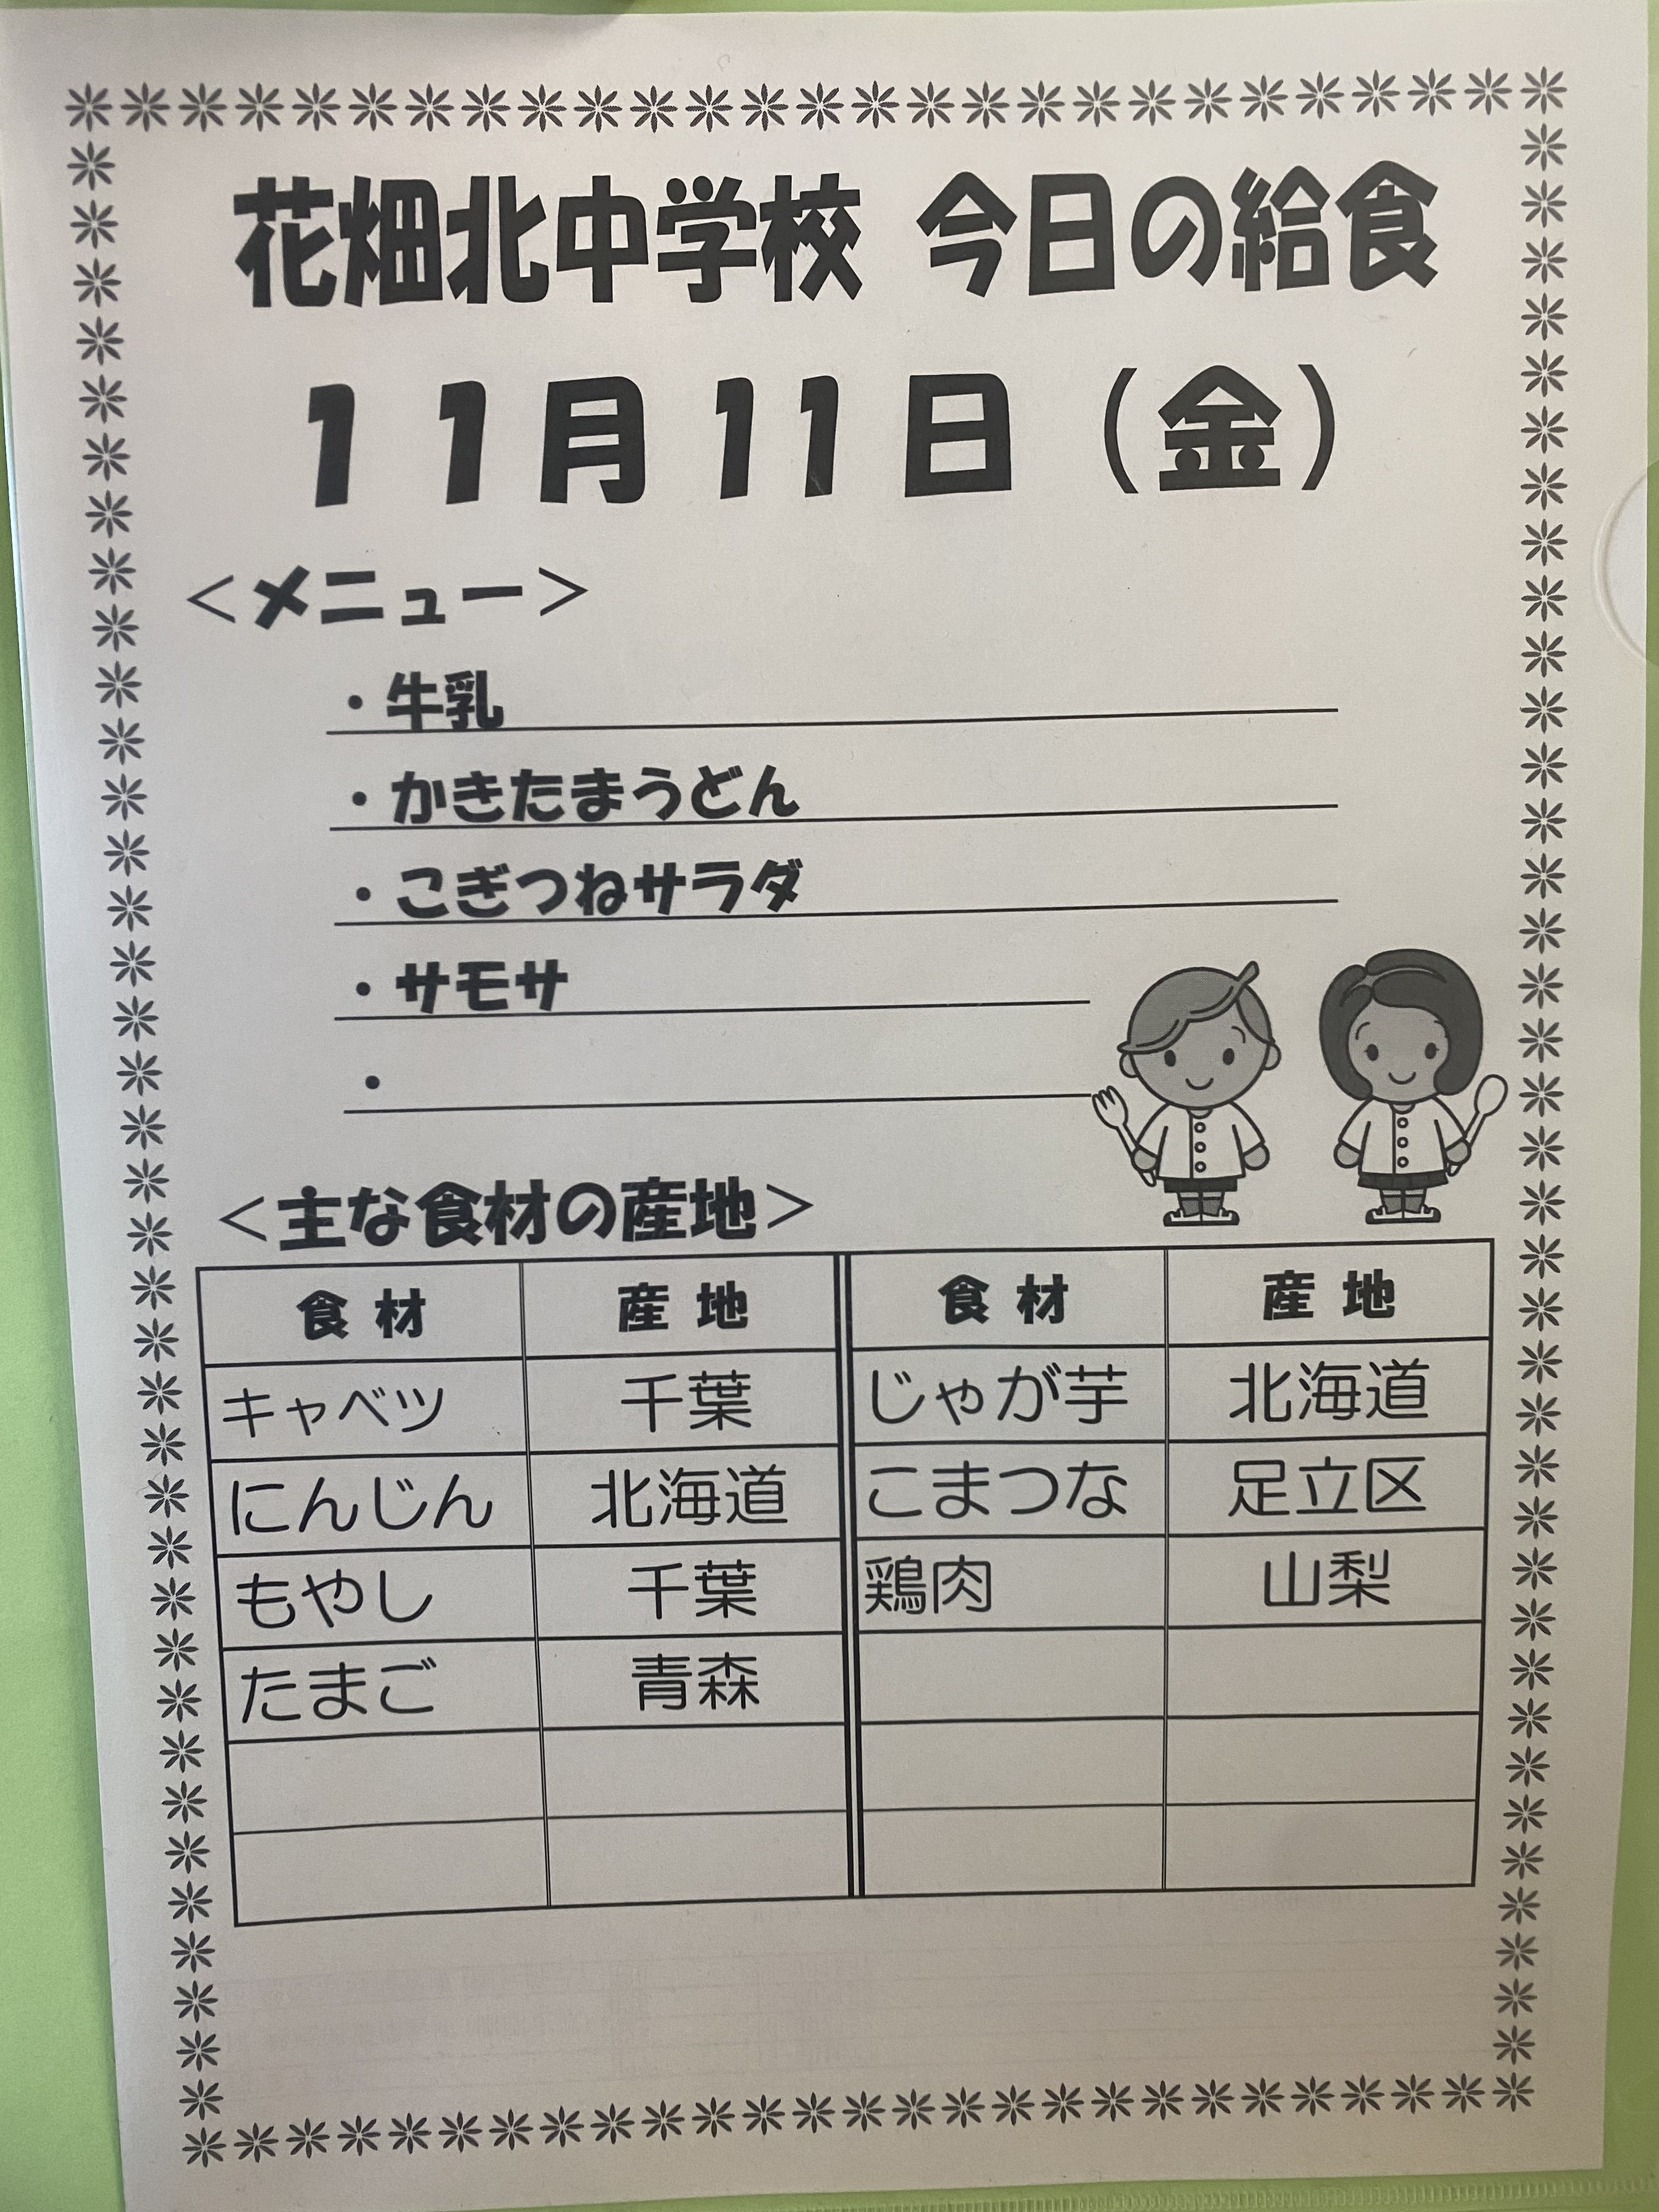 花畑北中学校 今日の給食
１１月11日（金）
＜メニュー＞
・牛乳
・かきたまうどん
・こぎつねサラダ
・サモサ
・
＜主な食材の産地＞
食 材 産 地 食 材 産 地
キャベツ 千葉 じゃが芋 北海道
にんじん 北海道 こまつな 足立区
もやし 千葉 鶏肉 山梨
たまご 青森